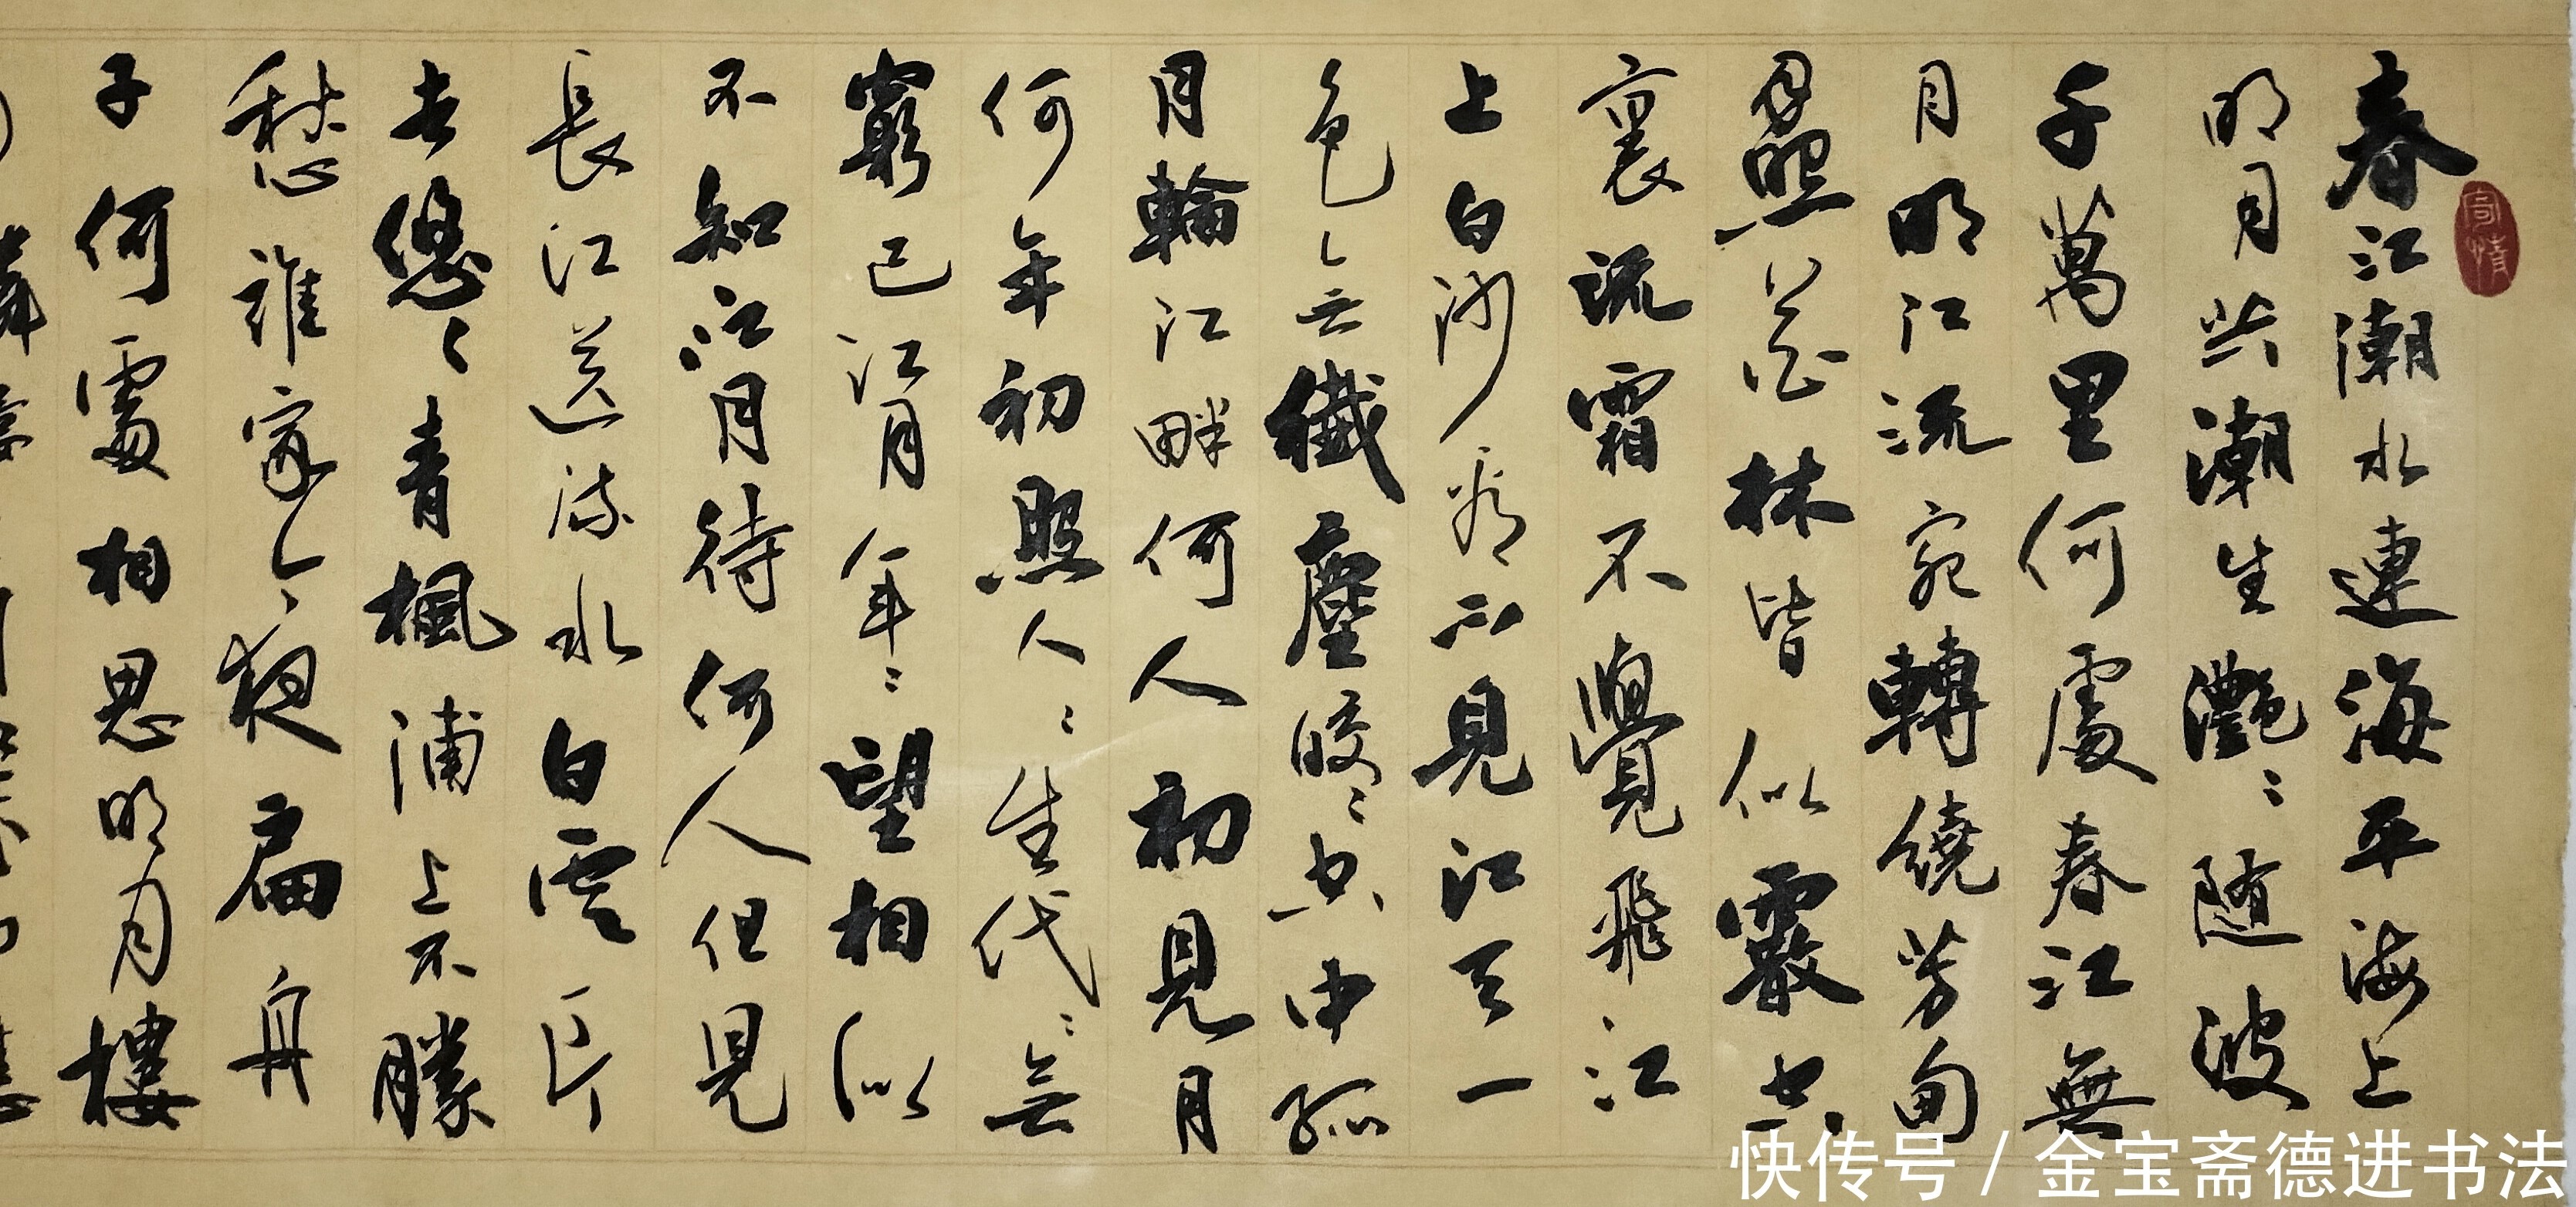 寄情
春江潮水連海平海上
明月共潮生灩〻随波
千萬里何處春江無
月明江流宛轉繞芳甸
月照花林皆似霰空
裏流霜不覺飛江
上白沙看不見江天一
色無纖塵皎〻空中孤
月輪江畔何人初見月
何年初照人〻生代〻無
窮已江月年〻望相似
不知江月待何人但見
長江送流水白雲一片
去悠〻青楓浦上不勝
愁誰家今夜扁舟
子何處相思明月樓
快传号/金宝斋德进书法